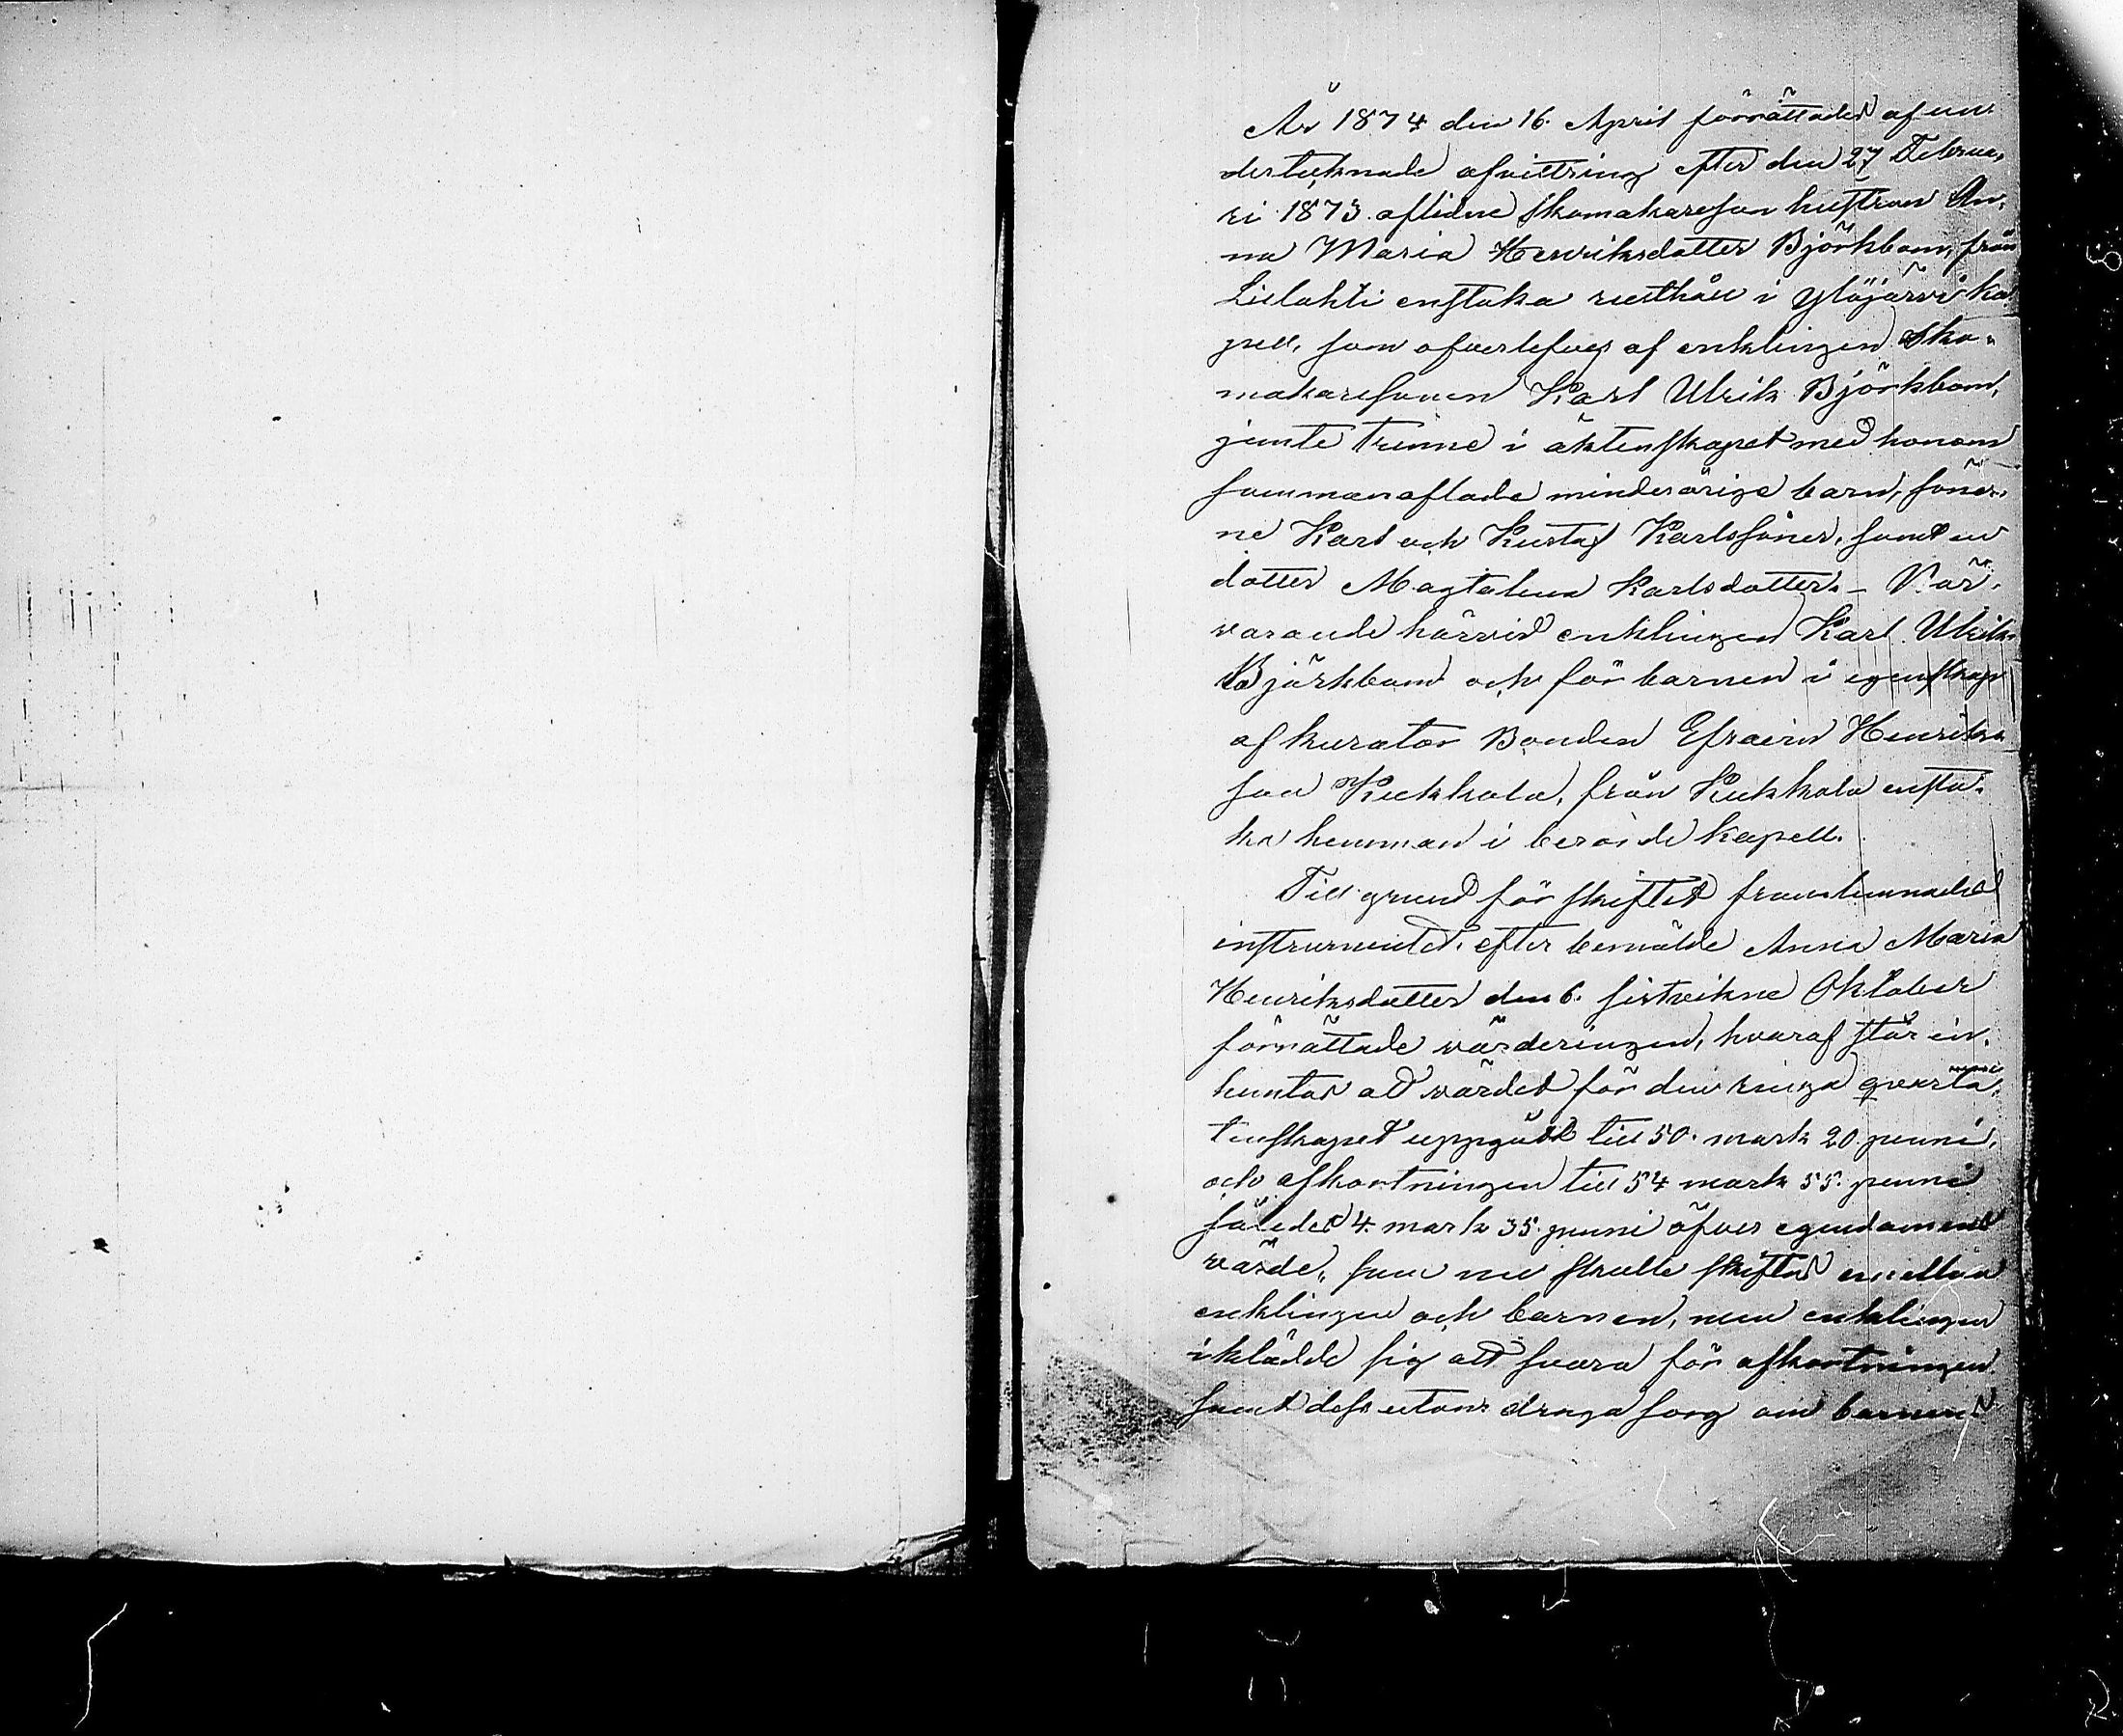 År 1874 den 16. April förrättades af un-
dertecknade afvittring efter den 27 Februa-
ri 1873. aflidne skomakareson hustrun An-
na Maria Henriksdotter Björkbom, från
Lielahti enstaka rusthåll i Ylöjärvi ka-
pell, som ofverlefves af enklingen Sko-
makaresonen Karl Ulrik Björkbom,
jemte trenne i äktenskapet med honom
sammanaflade minderåriga barn, söner-
ne Karl och Kustaf Karlssöner, samt en
dotter Magtalena Karlsdotter. – När-
varande härvid enklingen Karl Ulrik
Björkbom och för barnen i egenskap
af kurator Bonden Efraim Henriks-
son Kuckkola, från Kuckkola ensta-
ka hemman i berörde kapell.
Till grund för skiftet framlemnades
instrumentet efter bemälde Anna Maria
Henriksdotter den 6. sistvikne Oktober
förrättade värderingen, hvaraf står in-
hemtas att värdet för den ringa qvarlå-
tenskapet uppgått till 50. mark 20 penni,
och afkortningen till 54 mark 55. penni
således 4. mark 35. penni öfver egendomens
värde, som nu skulle skiftas emellan
enklingen och barnen, men enklingen
iklädde sig att svara för afkortningen
samt dessutom draga sorg om barnens